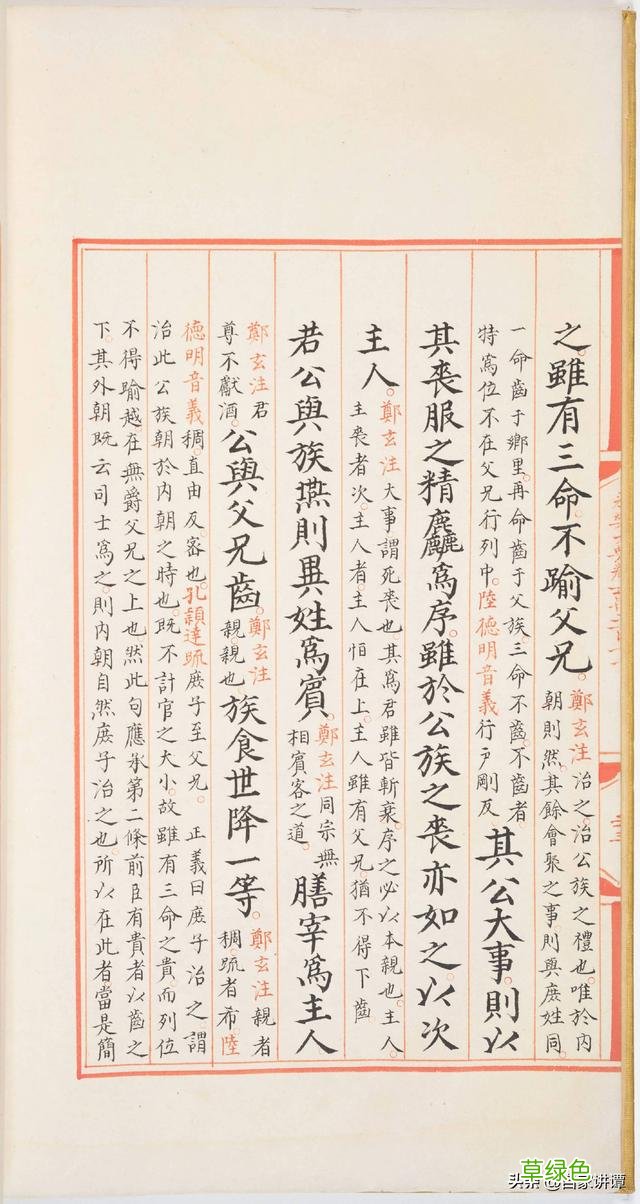 之。雖有三命。不踰父兄。鄭玄注治之。治公族之禮也。唯於內
朝則然。其餘會聚之事則與庶姓同。
一命齒于鄉里。再命齒于父族。三命不齒。不齒者。
特爲位不在父兄行列中。陸德明音義行戶剛反。其公大事。則以
其喪服之精麤爲序。雖於公族之喪亦如之。以次
主人。鄭玄注大事謂死喪也。其爲君雖皆斬衰。序之必以本親也。主人
主喪者次。主人者。主人恒在上。主人雖有父兄。猶不得下齒
若公與族燕。則異姓爲賓。鄭玄注同宗無
相賓客之道。膳宰爲主人
鄭玄注君
尊不獻酒。公與父兄齒。鄭玄注
親親也。族食世降一等。鄭玄注親者
稠。疏者希。陸
德明音義稠。直由反。密也。孔穎達疏庶子至父兄。正義曰庶子治之謂
治此公族朝於內朝之時也。既不計官之大小。故雖有三命之貴。而列位
不得踰越。在無爵父兄之上也。然此句應承第二條前臣有貴者以齒之
下。其外朝既云司士爲之。則內朝自然庶子治之也。所以在此者當是簡
草绿色
头条 @百家讲谭